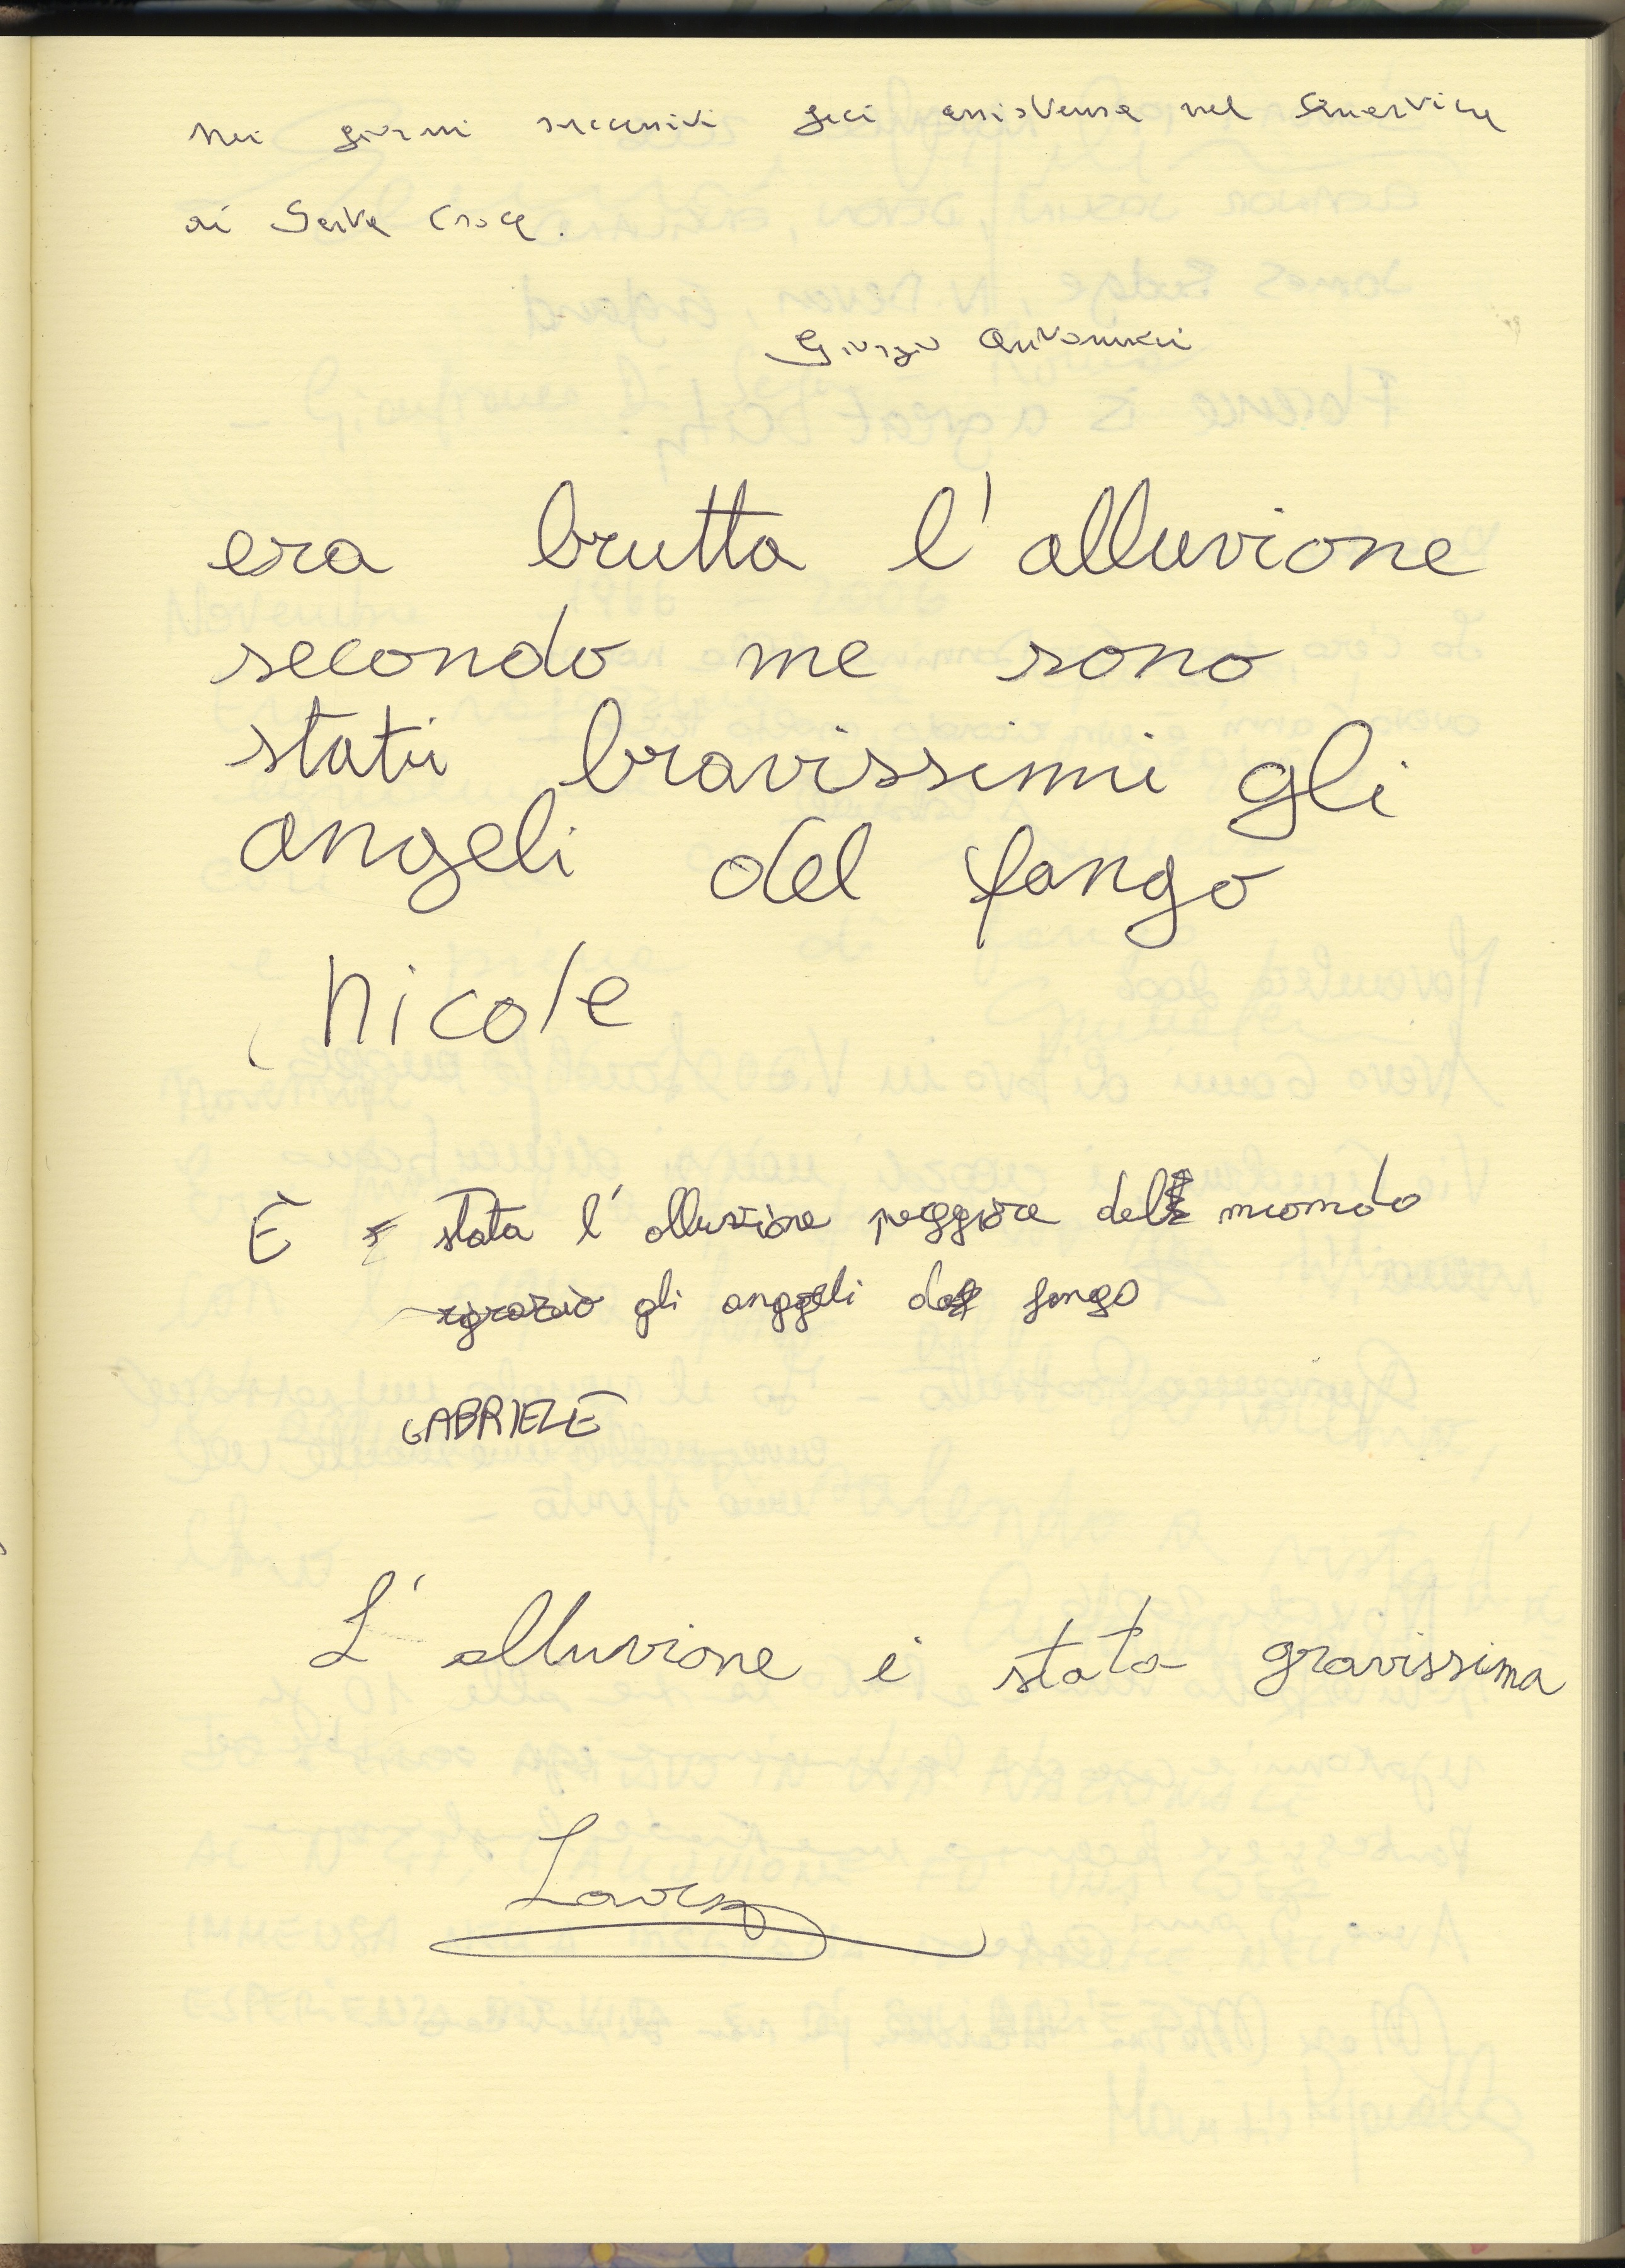 Nei giorni successivi feci assistenza nel Quartiere
di Santa Croce.
Giorgio
era brutta l'alluvione
secondo me sono
stati bravissimi gli
angeli del fango
Nicole
È stata l'alluvione peggiore del mondo
rigrazio gli anggeli del fango
GABRIELE
L'alluvione è stata gravissima